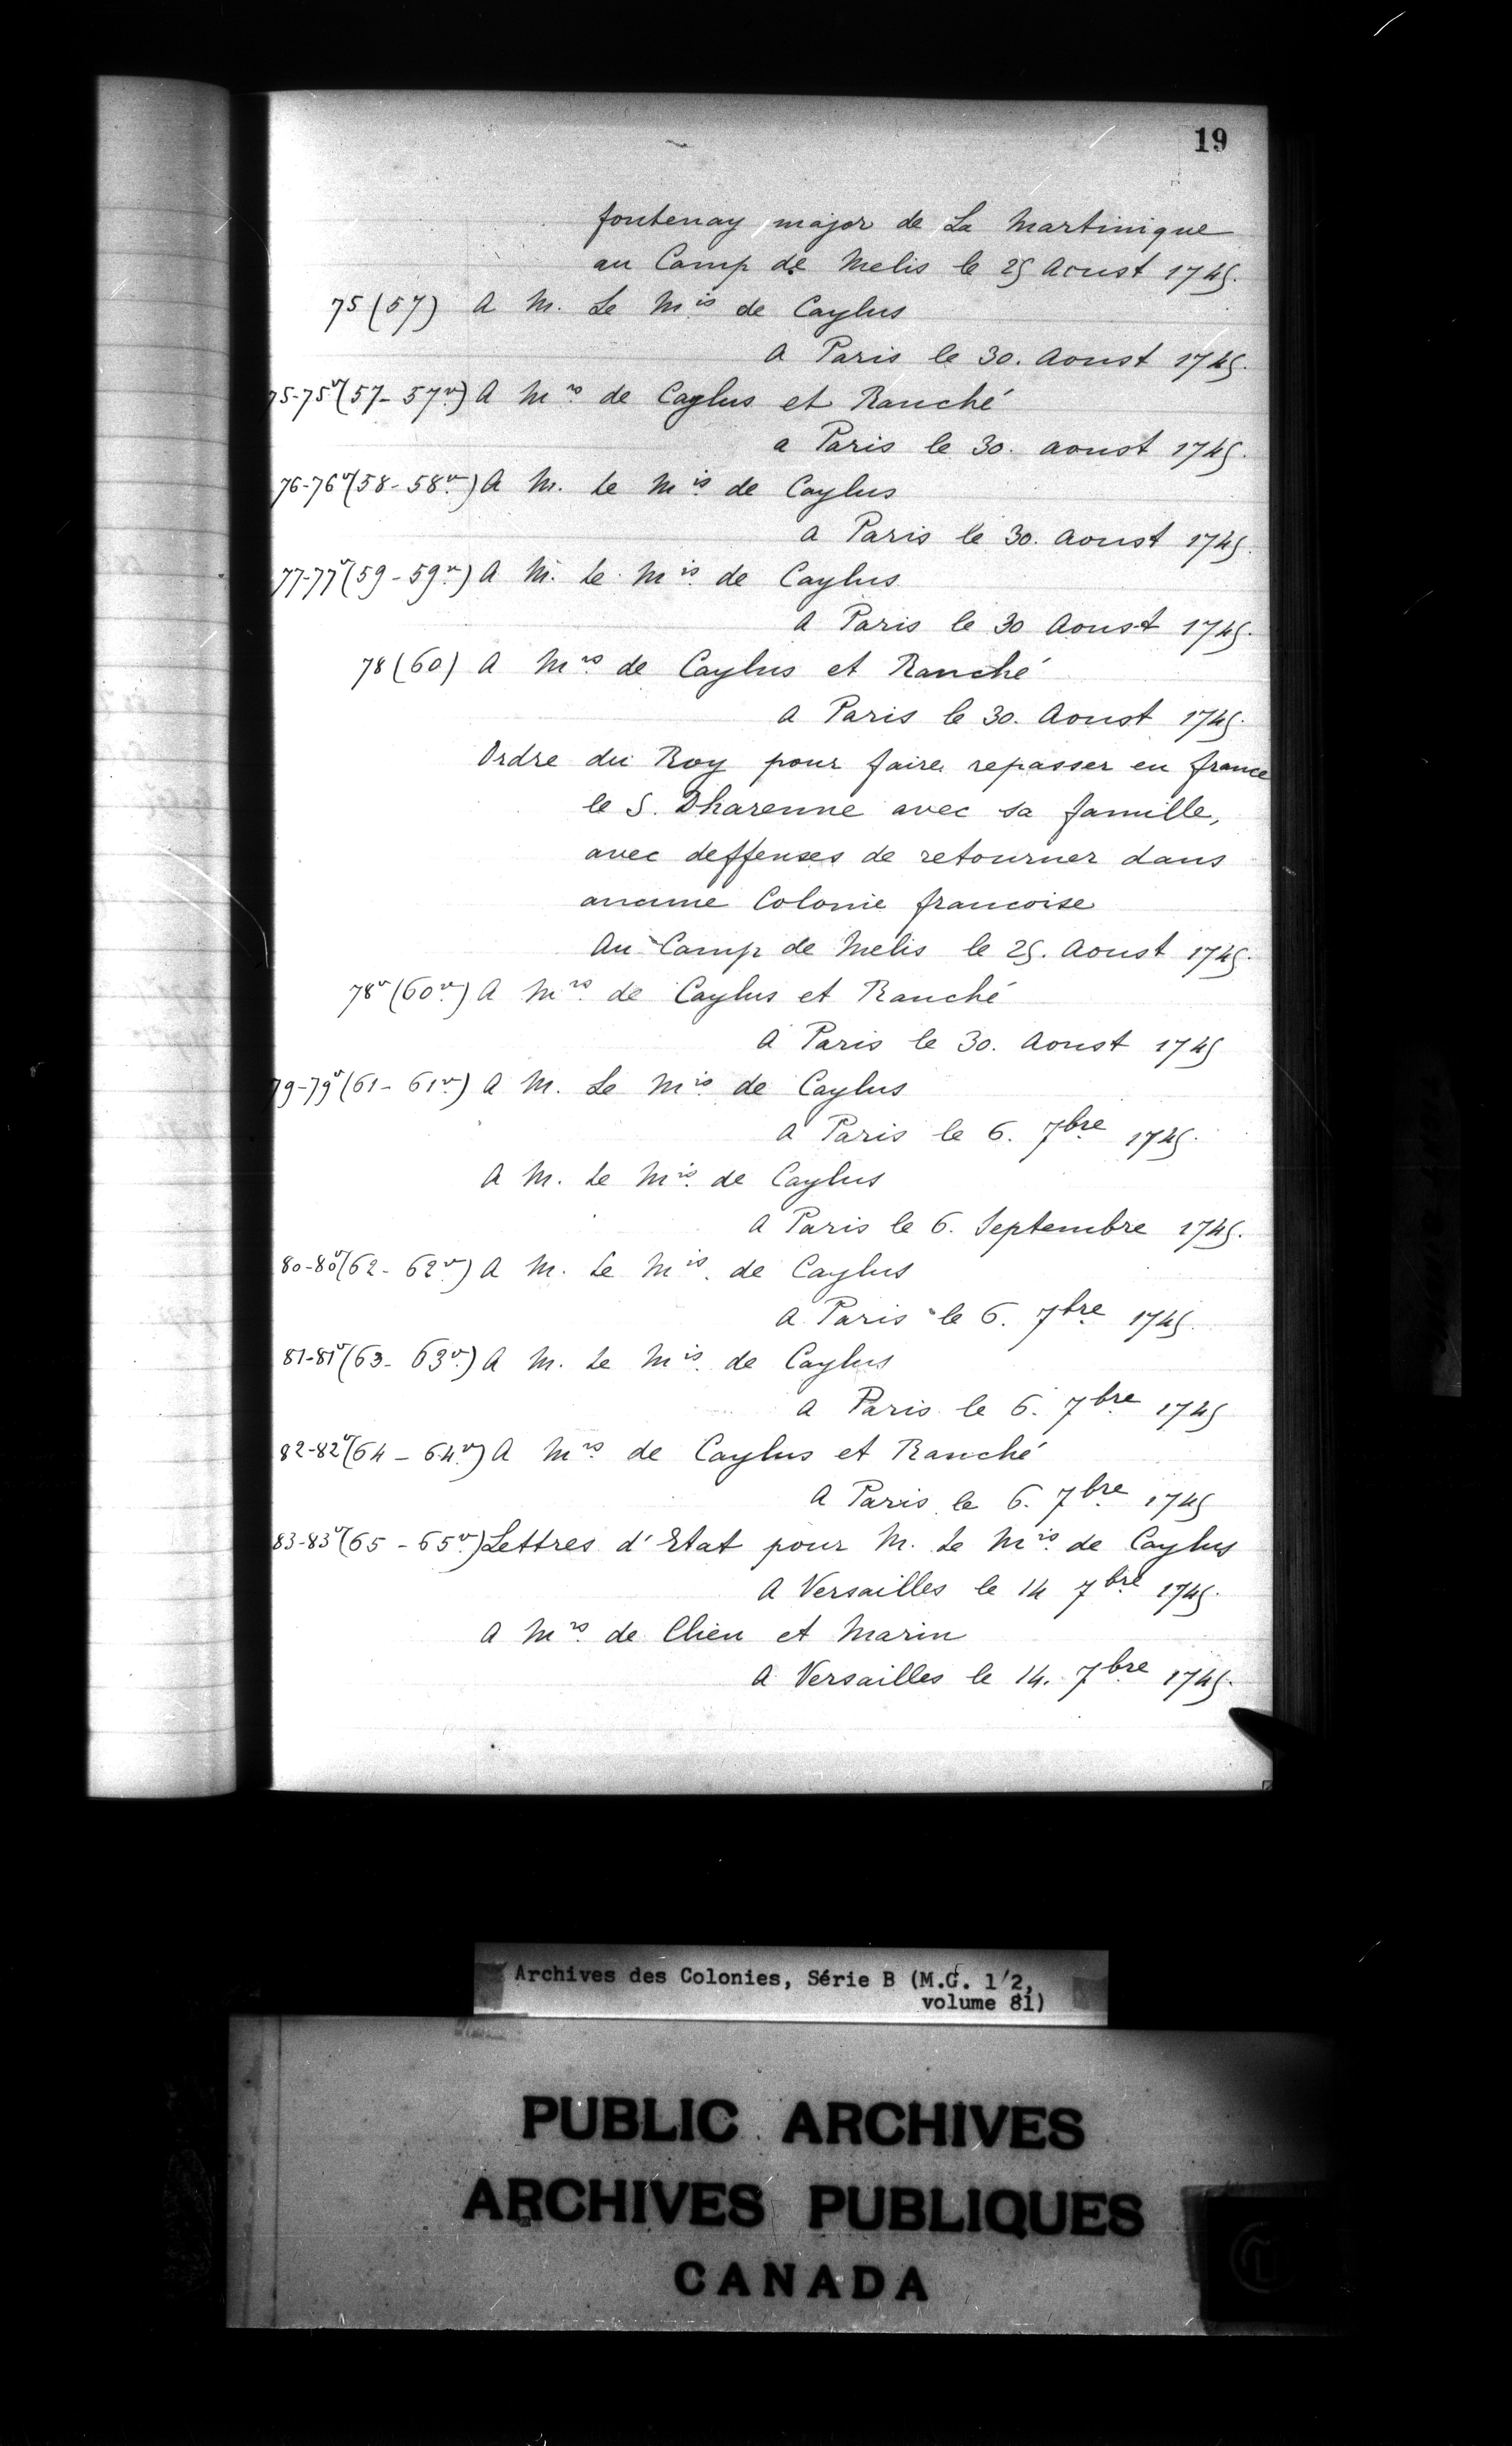 19
fontenay major de La Martinique
au Camp de Melis le 25 Aoust 1745.
75 (57) A M. Le Mis de Caylus
A Paris le 30. Aoust 1745.
75-75v (57-57v) A Mrs de Caylus et Ranché
a Paris le 30. aoust 1745.
76-76v (58-58v) A M. Le Mis de Caylus
a Paris le 30. Aoust 1745.
77-77v (59-59v) A M. Le Mis de Caylus
A Paris le 30 Aoust 1745.
78 (60) A Mrs de Caylus et Ranché
A Paris le 30. Aoust 1745.
Ordre du Roy pour faire repasser en france
le S. Dharenne avec sa famille,
avec deffenses de retourner dans
aucune Colonie francoise
Au Camp de Melis le 25. Aoust 1745.
78v (60v) A Mrs de Caylus et Ranché
A Paris le 30. Aoust 1745
79-79v (61-61v) A M. Le Mis de Caylus
a Paris le 6. 7bre 1745.
A M. Le Mis de Caylus
A Paris le 6. Septembre 1745.
80-80v (62-62v) A M. Le Mis. de Caylus
A Paris le 6. 7bre 1745.
81-81v (63-63v) A M. Le Mis de Caylus
A Paris le 6. 7bre 1745
82-82v (64-64v) A Mrs de Caylus et Ranché
A Paris le 6. 7bre 1745
83-83v (65-65v) Lettres d'Etat pour M. Le Mis de Caylus
A Versailles le 14 7bre 1745.
A Mrs de Clieu et Marin
A Versailles le 14. 7bre 1745.
Archives des Colonies, Série B (M.G. 1/2,
volume 81)
PUBLIC ARCHIVES
ARCHIVES PUBLIQUES
CANADA